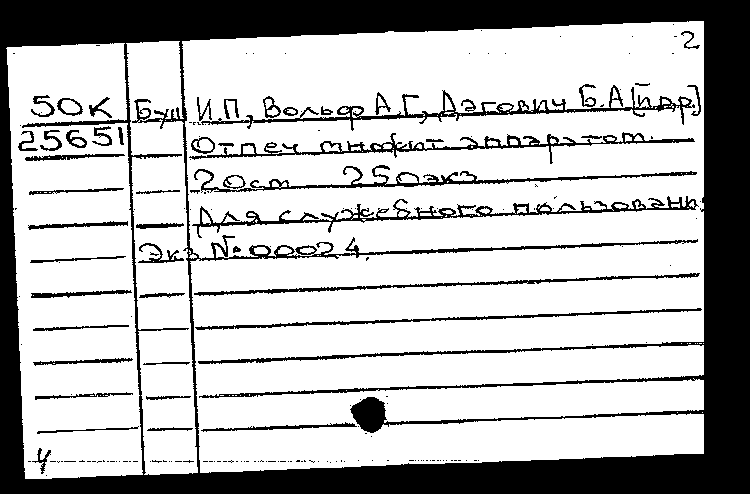 2
50К Буш И.П., Вольф А.Г., Дагович Б.А [и др.]
25651 Отпеч множит аппаратом.
20см 250экз
Для служебного пользования
Экз №00024.
4